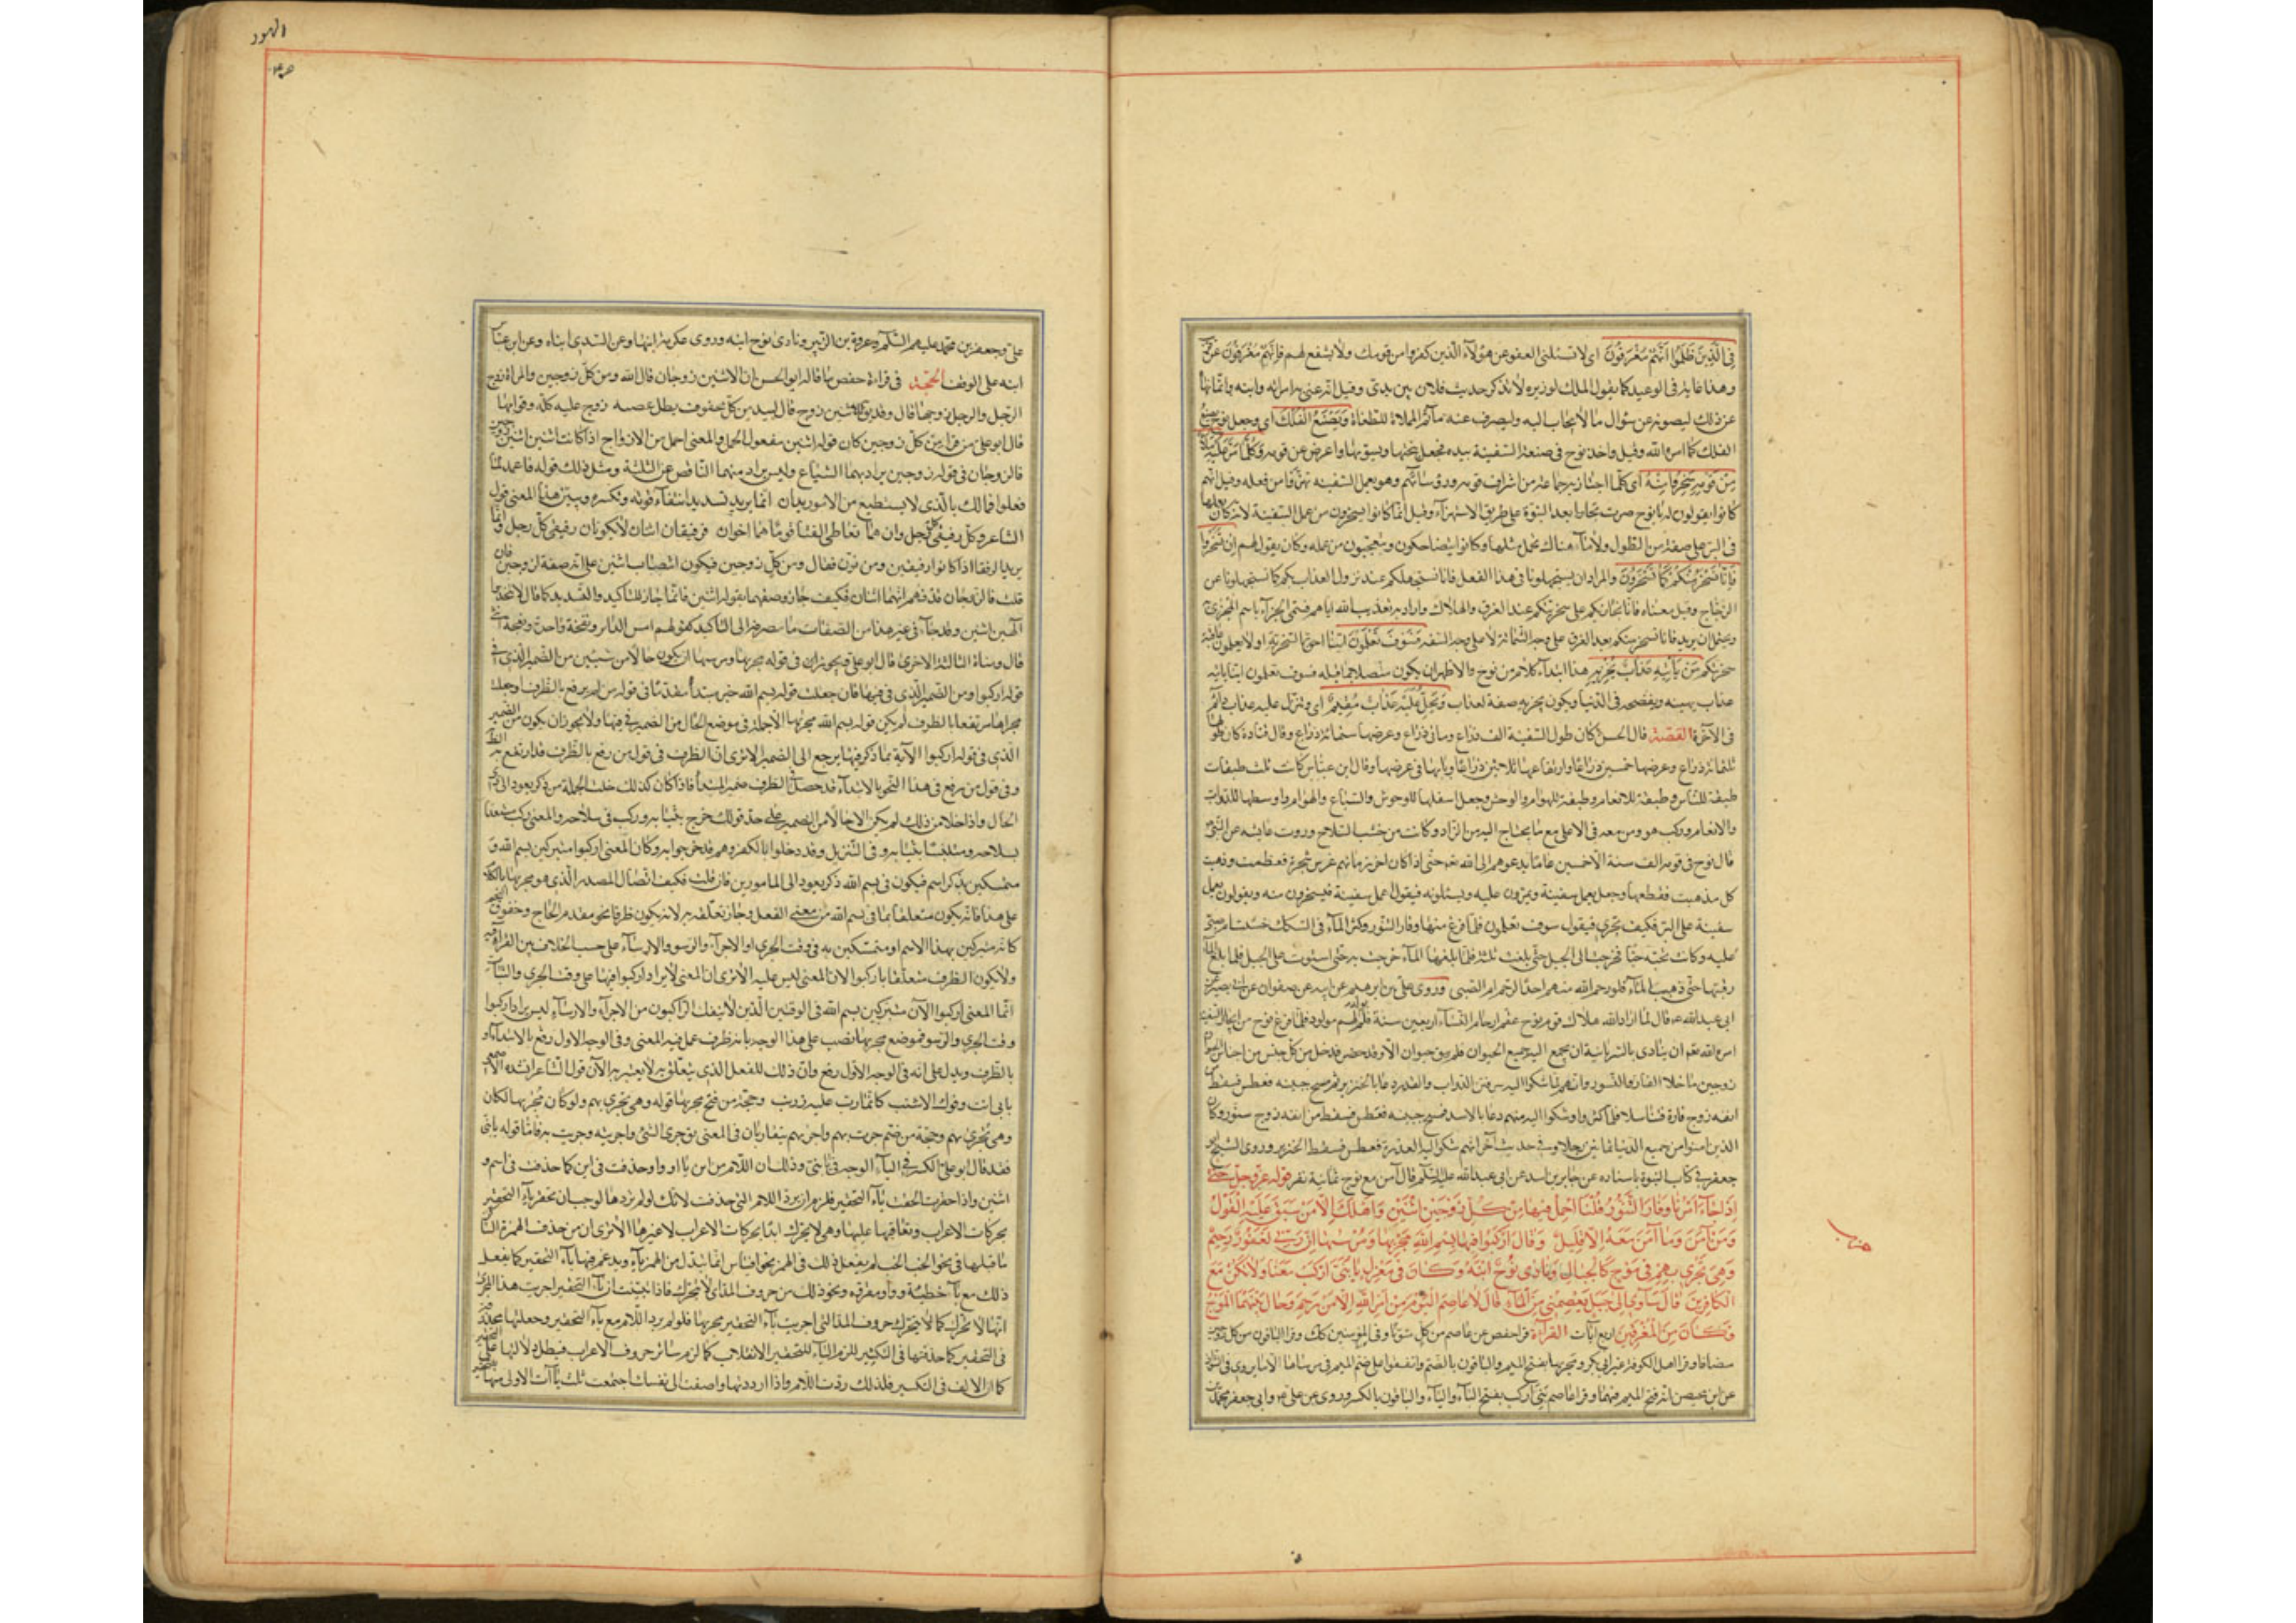 فِي الَّذِينَ ظَلَمُوا إِنَّهُمْ مُغْرَقُونَ اى لا تسئلنى العفو عن هؤلاء الذين كفروا من قومك ولا تشفع لهم فانهم مغرقون عن
وهذا غاية فى الوعيد كما يقول الملك لوزيره لا تذكر حديث فلان بين يدى وقيل انه عنى به امرأته وابنه وانما نهاه
عن ذلك ليصونه عن سؤال ما لا يجاب اليه وليصرف عنه مآثم الممالاة للطغاة وَيَصْنَعُ الْفُلْكَ اى وجعل نوح يصنع
الفلك كما امره الله وقيل واخذ نوح فى صنعة السفينة بيده فجعل ينحتها ويسويها واعرض عن قومه وَكُلَّمَا مَرَّ عَلَيْهِ مَلَأٌ
مِنْ قَوْمِهِ سَخِرُوا مِنْهُ اى كلما اجتاز به جماعة من اشراف قومه ورؤسائهم وهو يعمل السفينة تهزؤا من فعله وقيل انهم
كانوا يقولون له يا نوح صرت نجارا بعد النبوة على طريق الاستهزاء وقيل انما كانوا يسخرون من عمل السفينة لانه كان يعملها
فى البر على صفة من الطول ولا ماء هناك يحمل مثلها وكانوا يتضاحكون ويتعجبون من عمله وكان يقول لهم ان تسخروا
فَإِنَّا نَسْخَرُ مِنْكُمْ كَمَا تَسْخَرُونَ والمراد ان تستجهلونا فى هذا الفعل فانا نستجهلكم عند نزول العذاب بكم كما تستجهلونا عن
الزجاج وقيل معناه فانا نجازيكم على سخريتكم عند الغرق والهلاك واراد به تعذيب الله اياهم فسمى الجزاء باسم المجزى
ويحتمل ان يريد فانا نسخر منكم بعد الغرق على وجه الشماتة لا على وجه السفه فَسَوْفَ تَعْلَمُونَ اينا احق بالسخرية او لا تعلمون عاقبة
سخريتكم مَنْ يَأْتِيهِ عَذَابٌ يُخْزِيهِ هذا ابتداء كلام من نوح والاظهر ان يكون متصلا بما قبله فسوف تعلمون اينا ياتيه
عذاب يهينه ويفضحه فى الدنيا ويكون يخزيه صفة لعذاب وَيَحِلُّ عَلَيْهِ عَذَابٌ مُقِيمٌ اى وينزل عليه عذاب دائم
فى الآخرة القصة قال الحسن كان طول السفينة الف ذراع ومائتى ذراع وعرضها ستمائة ذراع وقال قتادة كان طولها
ثلثمائة ذراع وعرضها خمسين ذراعا وارتفاعها ثلاثين ذراعا وبابها فى عرضها وقال ابن عباس كانت ثلث طبقات
طبقة للناس وطبقة للانعام وطبقة للهوام والوحش وجعل اسفلها للوحوش والسباع والهوام واوسطها للدواب
والانعام وركب هو ومن معه فى الاعلى مع ما يحتاج اليه من الزاد وكانت من خشب الساج وروت عايشة عن النبى
قال نوح فى قومه الف سنة الا خمسين عاما يدعوهم الى الله حتى اذا كان آخر زمانهم غرس شجرة فعظمت وذهبت
كل مذهب فقطعها وجعل يعمل سفينة ويمرون عليه ويسئلونه فيقول اعمل سفينة فيسخرون منه ويقولون تعمل
سفينة على البر فكيف تجرى فيقول سوف تعلمون فلما فرغ منها وفار التنور وكثر الماء فى السكك خشيت ام صبى
عليه وكانت تحبه حبا فخرجت الى الجبل حتى بلغت ثلثه فلما بلغها الماء خرجت به حتى استوت على الجبل فلما بلغ الماء
رقبتها حتى ذهب الماء فلو رحم الله منهم احدا لرحم ام الصبى وروى على بن ابرهيم عن ابيه عن صفوان عن ابى بصير عن
ابى عبدالله ع قال لما اراد الله هلاك قوم نوح عقم ارحام النساء اربعين سنة فلم يولد لهم مولود فلما فرغ نوح من اتخاذ السفينة
امره الله تعم ان ينادى بالسريانية ان يجمع اليه جميع الحيوان فلم يبق حيوان الا وقد حضر فدخل من كل جنس من اجناس الحيوان
زوجين ما خلا الفار والسنور وانهم لما شكوا اليه سرقين الدواب والقذر دعا بالخنزير فمسح جبينه فعطس فسقط من
انفه زوج فارة فتناسلا فلما كثروا وشكوا اليه منهم دعا بالاسد فمسح جبينه فعطس فسقط من انفه زوج سنور وكان
الذين امنوا من جميع الدنيا ثمانين رجلا وفى حديث آخر انهم شكوا اليه العذرة فعطس فسقط الخنزير وروى الشيخ ابو
جعفر فى كتاب النبوة باسناده عن جابر بن اسد عن ابى عبدالله عليه السلم قال آمن مع نوح ثمانية نفر قوله عز وجل حَتَّى
إِذَا جَاءَ أَمْرُنَا وَفَارَ التَّنُّورُ قُلْنَا احْمِلْ فِيهَا مِنْ كُلٍّ زَوْجَيْنِ اثْنَيْنِ وَأَهْلَكَ إِلَّا مَنْ سَبَقَ عَلَيْهِ الْقَوْلُ
وَمَنْ آمَنَ وَمَا آمَنَ مَعَهُ إِلَّا قَلِيلٌ وَقَالَ ارْكَبُوا فِيهَا بِسْمِ اللَّهِ مَجْرَيهَا وَمُرْسَيهَا إِنَّ رَبِّي لَغَفُورٌ رَحِيمٌ
وَهِيَ تَجْرِي بِهِمْ فِي مَوْجٍ كَالْجِبَالِ وَنَادَى نُوحٌ ابْنَهُ وَكَانَ فِي مَعْزِلٍ يَا بُنَيَّ ارْكَبْ مَعَنَا وَلَا تَكُنْ مَعَ
الْكَافِرِينَ قَالَ سَآوِي إِلَى جَبَلٍ يَعْصِمُنِي مِنَ الْمَاءِ قَالَ لَا عَاصِمَ الْيَوْمَ مِنْ أَمْرِ اللَّهِ إِلَّا مَنْ رَحِمَ وَحَالَ بَيْنَهُمَا الْمَوْجُ
فَكَانَ مِنَ الْمُغْرَقِينَ اربع آيات القراءة قرأ حفص عن عاصم من كل منونا وفى المؤمنين كك وقرا الباقون من كل زوجين
مضافا وقرا اهل الكوفة غير ابى بكر مجريها بفتح الميم والباقون بالضم واتفقوا على ضم الميم فى مرساها الا ما يروى فى الشواذ
عن ابن محيصن انه فتح الميم فيهما وقرا عاصم يا بنى اركب بفتح الياء والباقون بالكسر وروى عن على ع وابى جعفر محمد بن
الهود
على وجعفر بن محمد عليهم السلم وعروة بن الزبير ونادى نوح ابنه وروى عكرمة ابنها وعن السدى ابناه وعن ابن عباس
ابنه على الوقف الحجة فى قراءة حفص ما قاله ابو الحسن ان الاثنين زوجان قال الله ومن كل زوجين والمراة زوج
الرجل والرجل زوجها قال وقد يقال للاثنين زوج قال لبيد من كل محفوف يظل عصيه زوج عليه كلة وقرامها
قال ابو على من قرا من كل زوجين كان قوله اثنين مفعول الحمل والمعنى احمل من الازواج اذا كانت اثنين اثنين زوجين
فالزوجان فى قوله زوجين يراد بهما الشياع وليس يراد منهما الناقص عن الثلثة ومثل ذلك قوله فاعمد لما
فعلوا فمالك بالذى لا يستطيع من الامور يدان انما يريد تشديد انتفاء قوته وتكسره ويبين هذا المعنى قول
الشاعر وكل رفيقى كل رجل وان هما تعاطى القنا قوما هما اخوان فرفيقان اثنان لا يكونان رفيقى كل رجل وانما
يريد الرفقا اذا كانوا رفيقين ومن نون فقال ومن كل زوجين فيكون انتصاب اثنين على انه صفة لزوجين فان
قلت فالزوجان قد فهم انهما اثنان فكيف جاز وصفهما بقوله اثنين فانما جاز للتأكيد والتشديد كما قال لا تتخذوا
الهين اثنين وقد جاء فى غير هذا من الصفات ما مصرفه الى التاكيد كقولهم امس الدابر ونفخة واحدة ونعجة انثى
قال ومناة الثالثة الاخرى قال ابو على ويجوز ان فى قوله مجريها ومرسيها ان يكون حالا من شيئين من الضمير الذى فى
قوله اركبوا ومن الضمير الذى فى فيها فان جعلت قوله بسم الله خبر مبتدأ مقدما فى قول من لم يرفع بالظرف او جعلت
مجراها مرتفعا بالظرف لم يكن قوله بسم الله مجريها الا جملة فى موضع الحال من الضمير فى فيها ولا يجوز ان يكون من الضمير
الذى فى قوله اركبوا الآنة بما ذكر فيها يرجع الى الضمير الا ترى ان الظرف فى قول من رفع بالظرف قد ارتفع به الظاهر
وفى قول من رفع فى هذا النحو بالابتداء قد حصل فى الظرف ضمير المبتدأ فاذا كان كذلك خلت الجملة من ذكر يعود الى ذى
الحال واذا خلا من ذلك لم يكن الا حالا من الضمير على حد قولك خرج بثيابه وركب فى سلاحه والمعنى ركب مستعدا
بسلاحه ومتلبسا بثيابه وفى التنزيل وقد دخلوا بالكفر وهم قد خرجوا به وكان المعنى اركبوا متبركين بسم الله و
متمسكين بذكر اسم فيكون فى بسم الله ذكر يعود الى المامورين فان قلت فكيف اتصال المصدر الذى هو مجريها بالكلام
على هذا فانه يكون متعلقا بما فى بسم الله من معنى الفعل وجاز تعلقه به لانه يكون ظرفا نحو مقدم الحاج وخفوق النجم
كانه متبركين بهذا الاسم او متمسكين به فى وقت الجرى او الاجراء والرسو والارساء على حسب الخلاف بين القراء فيه
ولا يكون الظرف متعلقا باركبوا لان المعنى ليس عليه الا ترى ان المعنى لا يراد اركبوا فيها على وقت الجرى والثبات
انما المعنى اركبوا الآن متبركين بسم الله فى الوقتين الذين لا ينفك الراكبون من الاجراء والارساء ليس يراد اركبوا
وقت الجرى والرسو فموضع مجريها نصب على هذا الوجه بانه ظرف عمل فيه المعنى وفى الوجه الاول رفع بالابتداء و
بالظرف ويدل على انه فى الوجه الاول رفع وان ذلك للفعل الذى يتعلق به لا يعتبر به الآن قول الشاعر انشده الاصمعى
بابى انت وفوك الاشنب كانما ذر عليه زرنب وحجة من فتح مجريها قوله وهى تجرى بهم ولو كان مجريها لكان
وهى تُجرى بهم وحجة من ضم جرت بهم واجر بهم يتقاربان فى المعنى يق جرى الشئ واجريته وجريت به فاما قوله يا بنى
فقد قال ابو على الكسر فى الياء الوجه فى يا بنى وذلك ان اللام من ابن يا او واو حذفت فى ابن كما حذفت فى اسم و
اثنين واذا حقرت الحقت ياء التحقير فلزم ان ترد اللام التى حذفت لانك لو لم تردها لوجب ان تحرك ياء التحقير
بحركات الاعراب وتعاقبها عليها وهى لا تحرك ابدا بحركات الاعراب لا غيرها الا ترى ان من حذف الهمزة الساكن
ما قبلها فى نحو الخبأ لم يفعل ذلك فى الهمز نحو افياس انما يبدل من الهمز ياء ويدغم فيها ياء التحقير كما يفعل
ذلك مع ياء خطيئة وواو مقروة ونحو ذلك من حروف المد التى لا تتحرك فاذا تبينت ان ياء التحقير اجريت هذا المجرى
انها لا تحرك كما لا يتحرك حروف المد التى اجريت ياء التحقير مجريها فلو لم يرد اللام مع ياء التحقير وجعلتها محذوفة
فى التحقير كما حذفتها فى التكبير للزم الياء للتحقير الانقلاب كما لزم سائر حروف الاعراب فيبطل دلالتها على التحقير
كما ان الالف فى التكسير فلذلك رددت اللام واذا اردتها واضفت الى نفسك اجتمعت ثلث ياآت الاولى منها